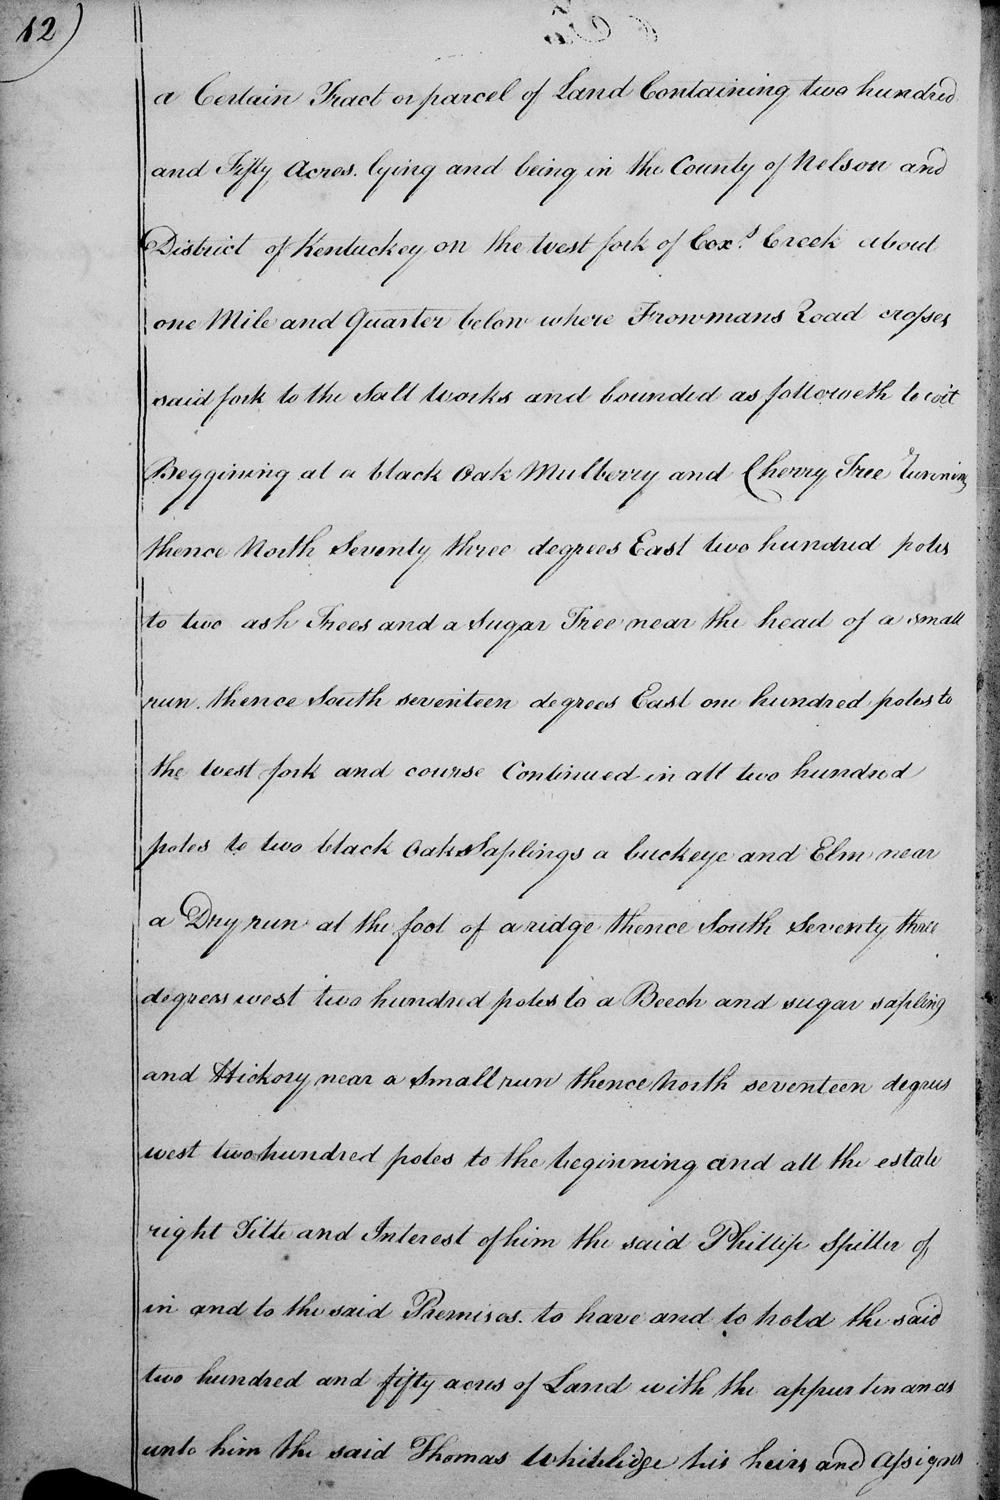 12)
a Certain Tract or parcel of Land Containing two hundred
and Fifty Acres. lying and being in the County of Nelson and
District of Kentuckey on the West fork of Cox.s Creek about
one Mile and Quarter below where Frowmans Road crosses
said fork to the Salt Works and bounded as followeth to wit
Beggining at a black Oak Mulberry and Cherry Tree
thence North Seventy three degrees East two hundred poles
to two ash Trees and a Sugar Tree near the head of a small
run. thence South seventeen degrees East one hundred poles to
the west fork and course Continued in all two hundred
poles to two black Oak Saplings a buckeye and Elm near
a Dry run at the foot of a ridge thence South Seventy three
degrees west two hundred poles to a Beech and sugar sapling
and Hickory near a Small run thence North seventeen degrees
west two hundred poles to the beginning and all the estate
right Title and Interest of him the said Phillip Spiller of
in and to the said Premises. to have and to hold the said
two hundred and fifty acres of Land with the appurtenances
unto him the said Thomas Whitlidge his heirs and Assigns